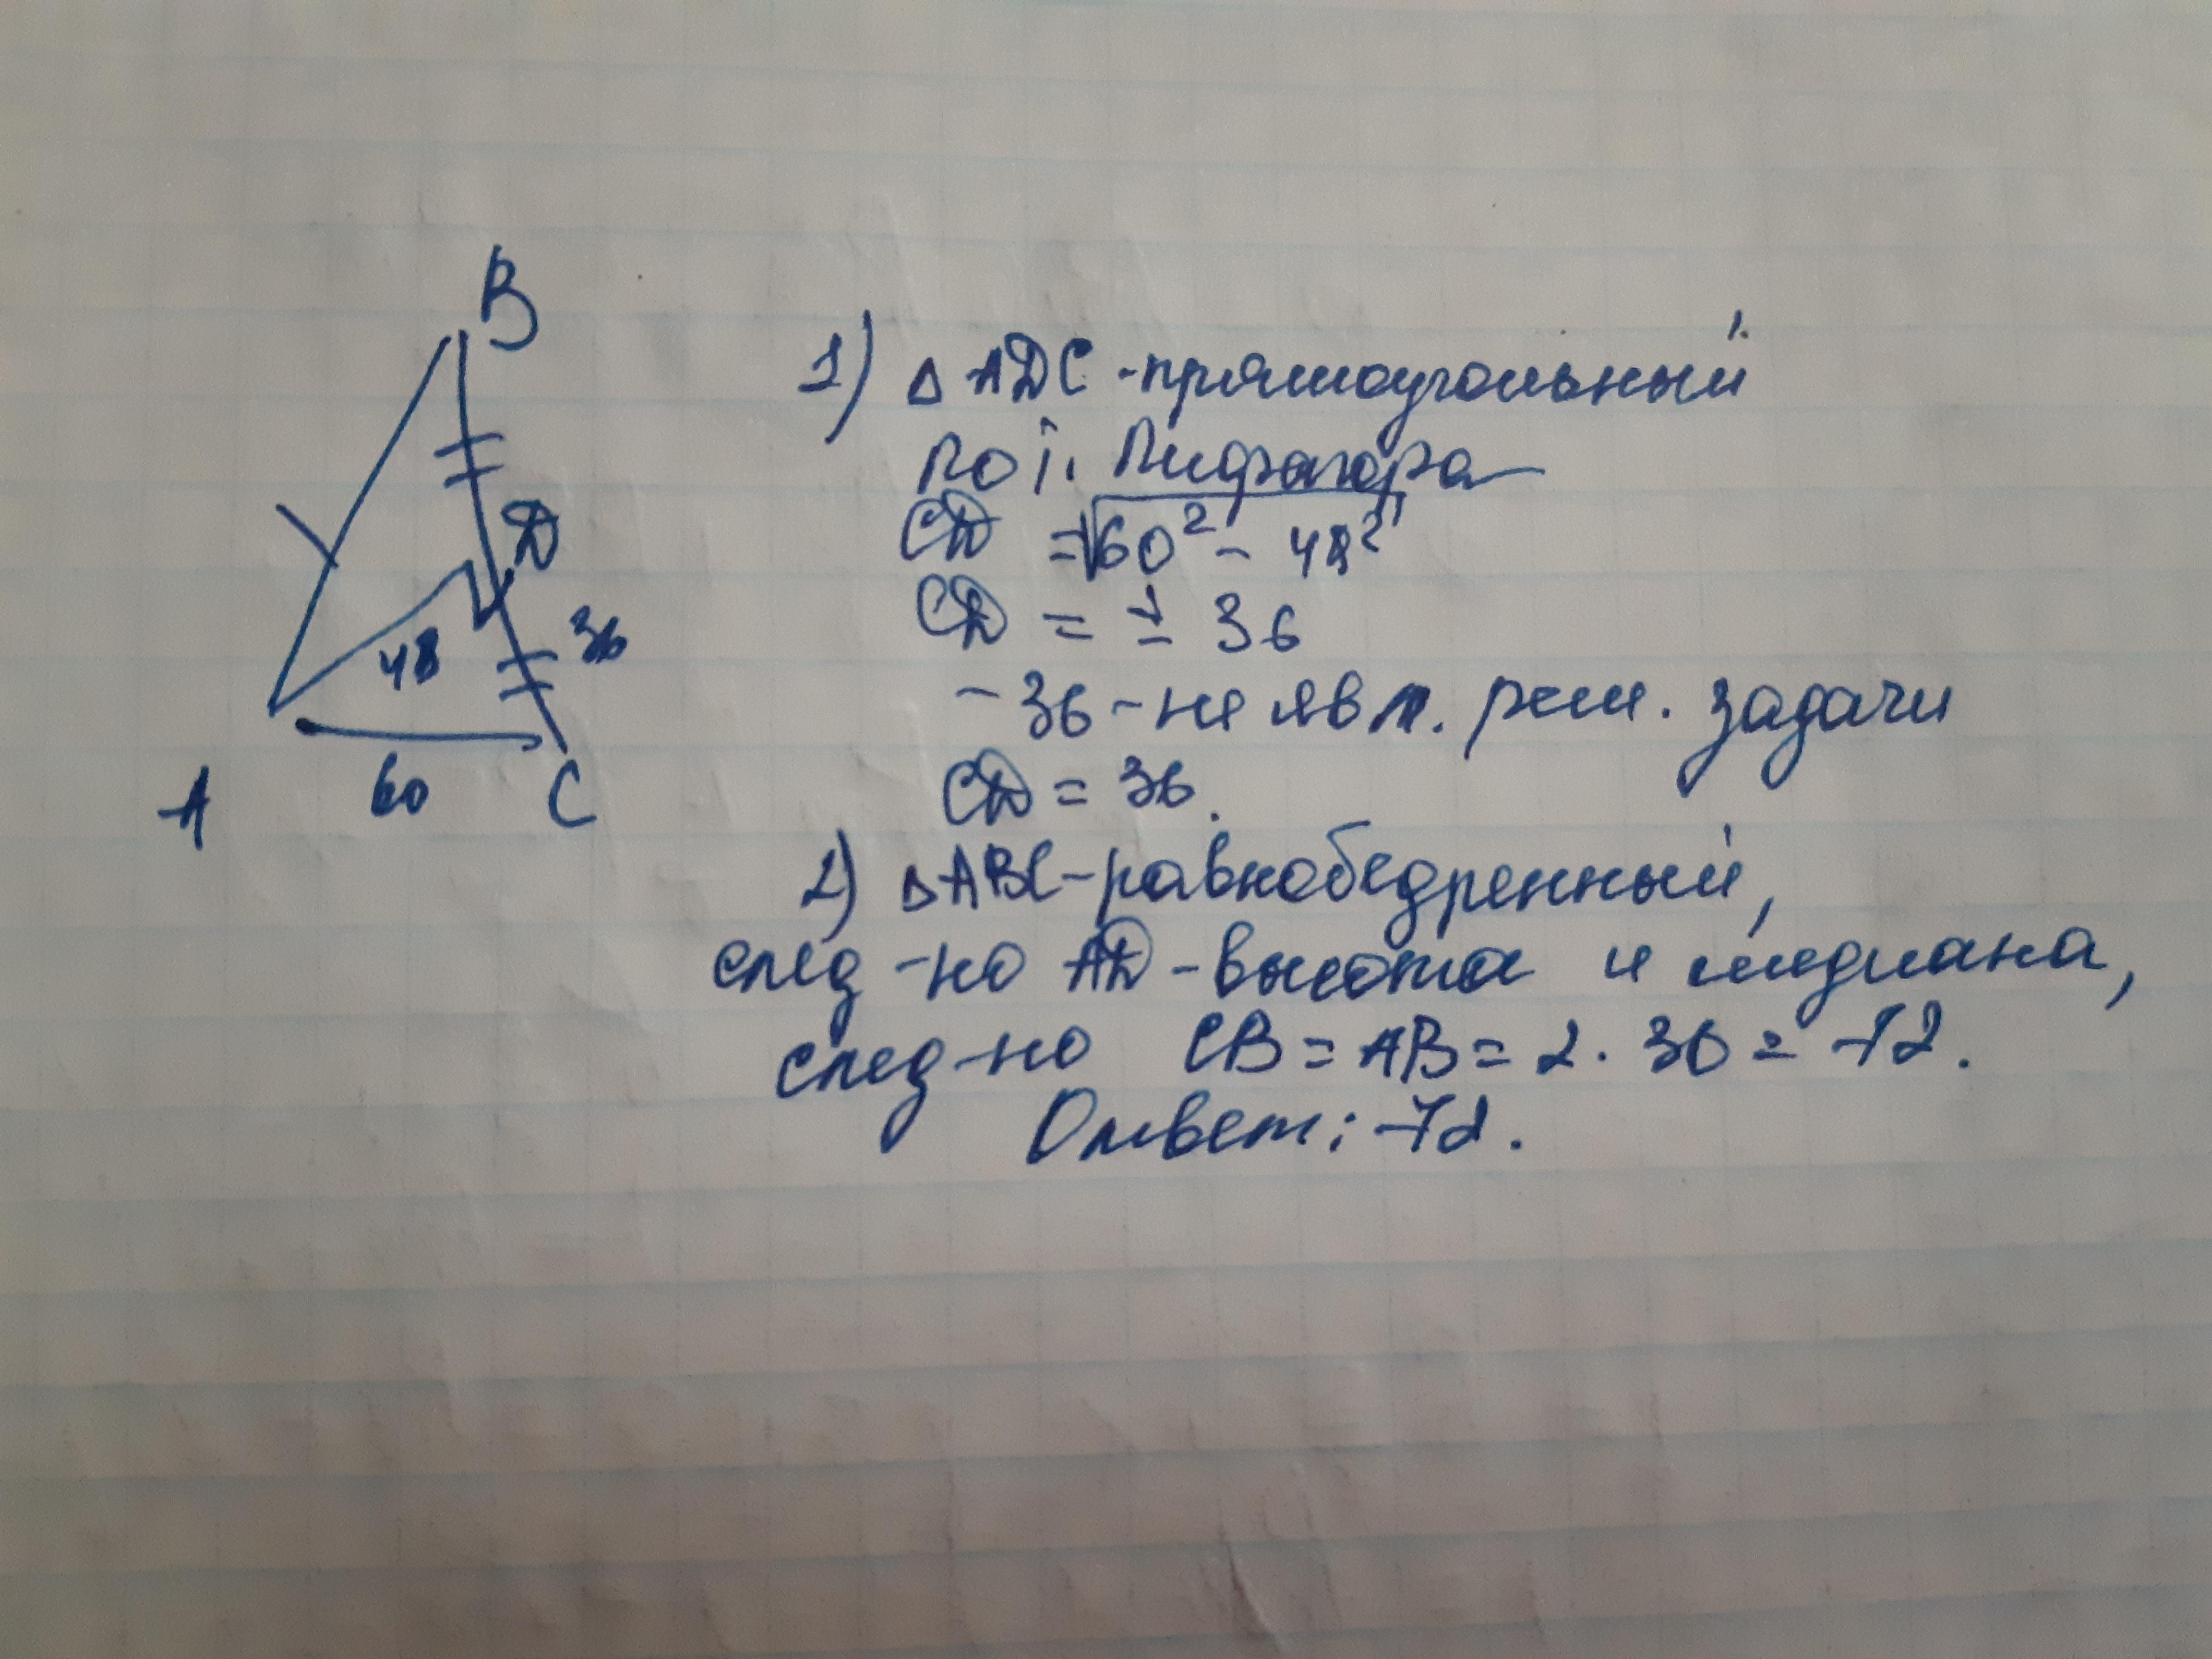 B
D
48
36
60
A
C
1) △ ADC - прямоугольный
по т. Пифагора
CD = √60² - 48²
CD = ± 36
- 36 - не явл. реш. задачи
CD = 36.
2) △ ABC - равнобедренный,
след-но AD - высота и медиана,
след-но CB = AB = 2 · 36 = 72.
Ответ: 72.